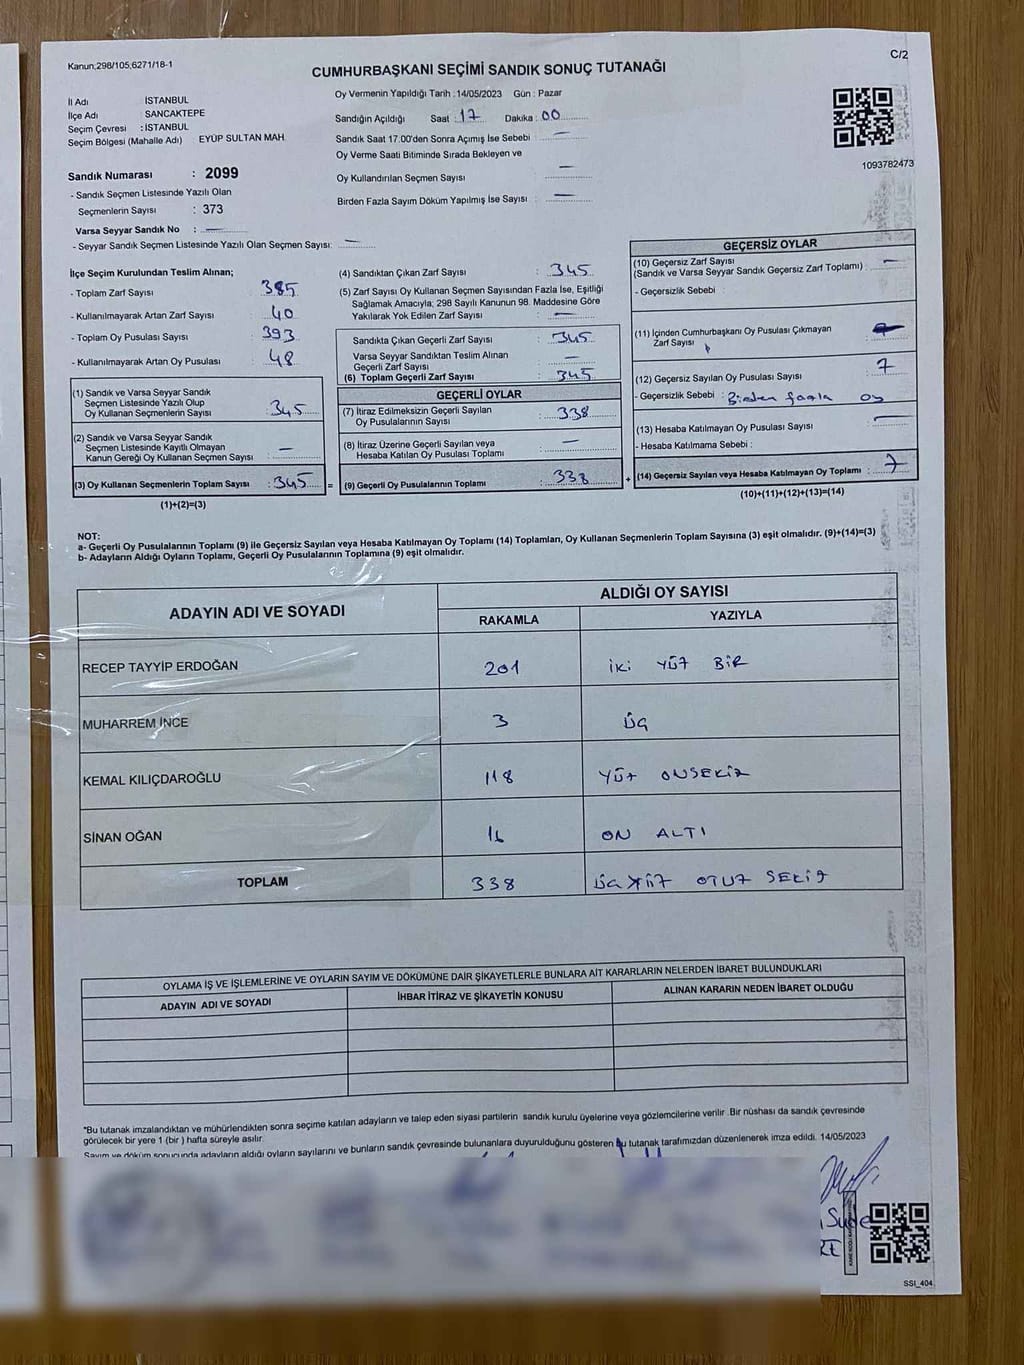 Kanun;298/105;6271/18-1
C/2
CUMHURBAŞKANI SEÇİMİ SANDIK SONUÇ TUTANAĞI
İl Adı İSTANBUL
İlçe Adı : SANCAKTEPE
Seçim Çevresi : İSTANBUL
Seçim Bölgesi (Mahalle Adı) EYÜP SULTAN MAH.
Sandık Numarası : 2099
- Sandık Seçmen Listesinde Yazılı Olan
Seçmenlerin Sayısı : 373
Varsa Seyyar Sandık No : —
- Seyyar Sandık Seçmen Listesinde Yazılı Olan Seçmen Sayısı: —
Oy Vermenin Yapıldığı Tarih :14/05/2023 Gün : Pazar
Sandığın Açıldığı Saat : 17 Dakika : 00
Sandık Saat 17.00'den Sonra Açımış İse Sebebi : —
Oy Verme Saati Bitiminde Sırada Bekleyen ve
Oy Kullandırılan Seçmen Sayısı : —
Birden Fazla Sayım Döküm Yapılmış İse Sayısı : —
1093782473
İlçe Seçim Kurulundan Teslim Alınan;
- Toplam Zarf Sayısı : 385
- Kullanılmayarak Artan Zarf Sayısı : 40
- Toplam Oy Pusulası Sayısı : 393
- Kullanılmayarak Artan Oy Pusulası : 48
(1) Sandık ve Varsa Seyyar Sandık
Seçmen Listesinde Yazılı Olup
Oy Kullanan Seçmenlerin Sayısı : 345
(2) Sandık ve Varsa Seyyar Sandık
Seçmen Listesinde Kayıtlı Olmayan
Kanun Gereği Oy Kullanan Seçmen Sayısı : —
(3) Oy Kullanan Seçmenlerin Toplam Sayısı : 345 =
(1)+(2)=(3)
(4) Sandıktan Çıkan Zarf Sayısı : 345
(5) Zarf Sayısı Oy Kullanan Seçmen Sayısından Fazla İse, Eşitliği
Sağlamak Amacıyla; 298 Sayılı Kanunun 98. Maddesine Göre
Yakılarak Yok Edilen Zarf Sayısı : —
Sandıkta Çıkan Geçerli Zarf Sayısı : 345
Varsa Seyyar Sandıktan Teslim Alınan
Geçerli Zarf Sayısı : —
(6) Toplam Geçerli Zarf Sayısı : 345
GEÇERLİ OYLAR
(7) İtiraz Edilmeksizin Geçerli Sayılan
Oy Pusulalarının Sayısı : 338
(8) İtiraz Üzerine Geçerli Sayılan veya
Hesaba Katılan Oy Pusulası Toplamı : —
(9) Geçerli Oy Pusulalarının Toplamı : 338 +
GEÇERSİZ OYLAR
(10) Geçersiz Zarf Sayısı
(Sandık ve Varsa Seyyar Sandık Geçersiz Zarf Toplamı) : —
- Geçersizlik Sebebi :
(11) İçinden Cumhurbaşkanı Oy Pusulası Çıkmayan
Zarf Sayısı :
(12) Geçersiz Sayılan Oy Pusulası Sayısı : 7
- Geçersizlik Sebebi : Birden fazla oy
(13) Hesaba Katılmayan Oy Pusulası Sayısı : —
- Hesaba Katılmama Sebebi :
(14) Geçersiz Sayılan veya Hesaba Katılmayan Oy Toplamı : 7
(10)+(11)+(12)+(13)=(14)
NOT:
a- Geçerli Oy Pusulalarının Toplamı (9) ile Geçersiz Sayılan veya Hesaba Katılmayan Oy Toplamı (14) Toplamları, Oy Kullanan Seçmenlerin Toplam Sayısına (3) eşit olmalıdır. (9)+(14)=(3)
b- Adayların Aldığı Oyların Toplamı, Geçerli Oy Pusulalarının Toplamına (9) eşit olmalıdır.
ADAYIN ADI VE SOYADI
ALDIĞI OY SAYISI
RAKAMLA YAZIYLA
RECEP TAYYİP ERDOĞAN 201 İKİ YÜZ BİR
MUHARREM İNCE 3 ÜÇ
KEMAL KILIÇDAROĞLU 118 YÜZ ONSEKİZ
SİNAN OĞAN 16 ON ALTI
TOPLAM 338 ÜÇ YÜZ OTUZ SEKİZ
OYLAMA İŞ VE İŞLEMLERİNE VE OYLARIN SAYIM VE DÖKÜMÜNE DAİR ŞİKAYETLERLE BUNLARA AİT KARARLARIN NELERDEN İBARET BULUNDUKLARI
ADAYIN ADI VE SOYADI İHBAR İTİRAZ VE ŞİKAYETİN KONUSU ALINAN KARARIN NEDEN İBARET OLDUĞU
*Bu tutanak imzalandıktan ve mühürlendikten sonra seçime katılan adayların ve talep eden siyasi partilerin sandık kurulu üyelerine veya gözlemcilerine verilir .Bir nüshası da sandık çevresinde
görülecek bir yere 1 (bir ) hafta süreyle asılır.
Sayım ve döküm sonucunda adayların aldığı oyların sayılarını ve bunların sandık çevresinde bulunanlara duyurulduğunu gösteren bu tutanak tarafımızdan düzenlenerek imza edildi. 14/05/2023
Sude
SSI_404